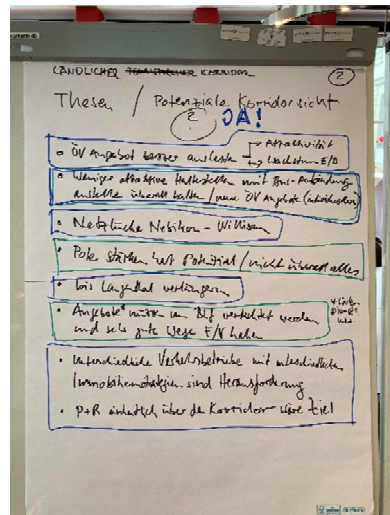 LÄNDLICHER KORRIDOR
2
Thesen / Potenziale Korridorsicht
?
JA!
• ÖV Angebot besser auslasten → Attraktivität
→ Wachstum E/A
• Weniger attraktive Haltestellen mit Bus-Anbindung
anstelle überall halten / neue ÖV Angebote
• Netzlücke Nebikon - Willisau
• Pole stärken hat Potenzial / nicht überall alles
• bis Langenthal verlängern
• Angebote müssen im Bhf verknüpft werden
und sehr gute Wege F/V haben
• Unterschiedliche Verkehrsbetriebe mit unterschiedlichen
Immobilienstrategien sind Herausforderung
• P+R einheitlich über den Korridor wäre Ziel